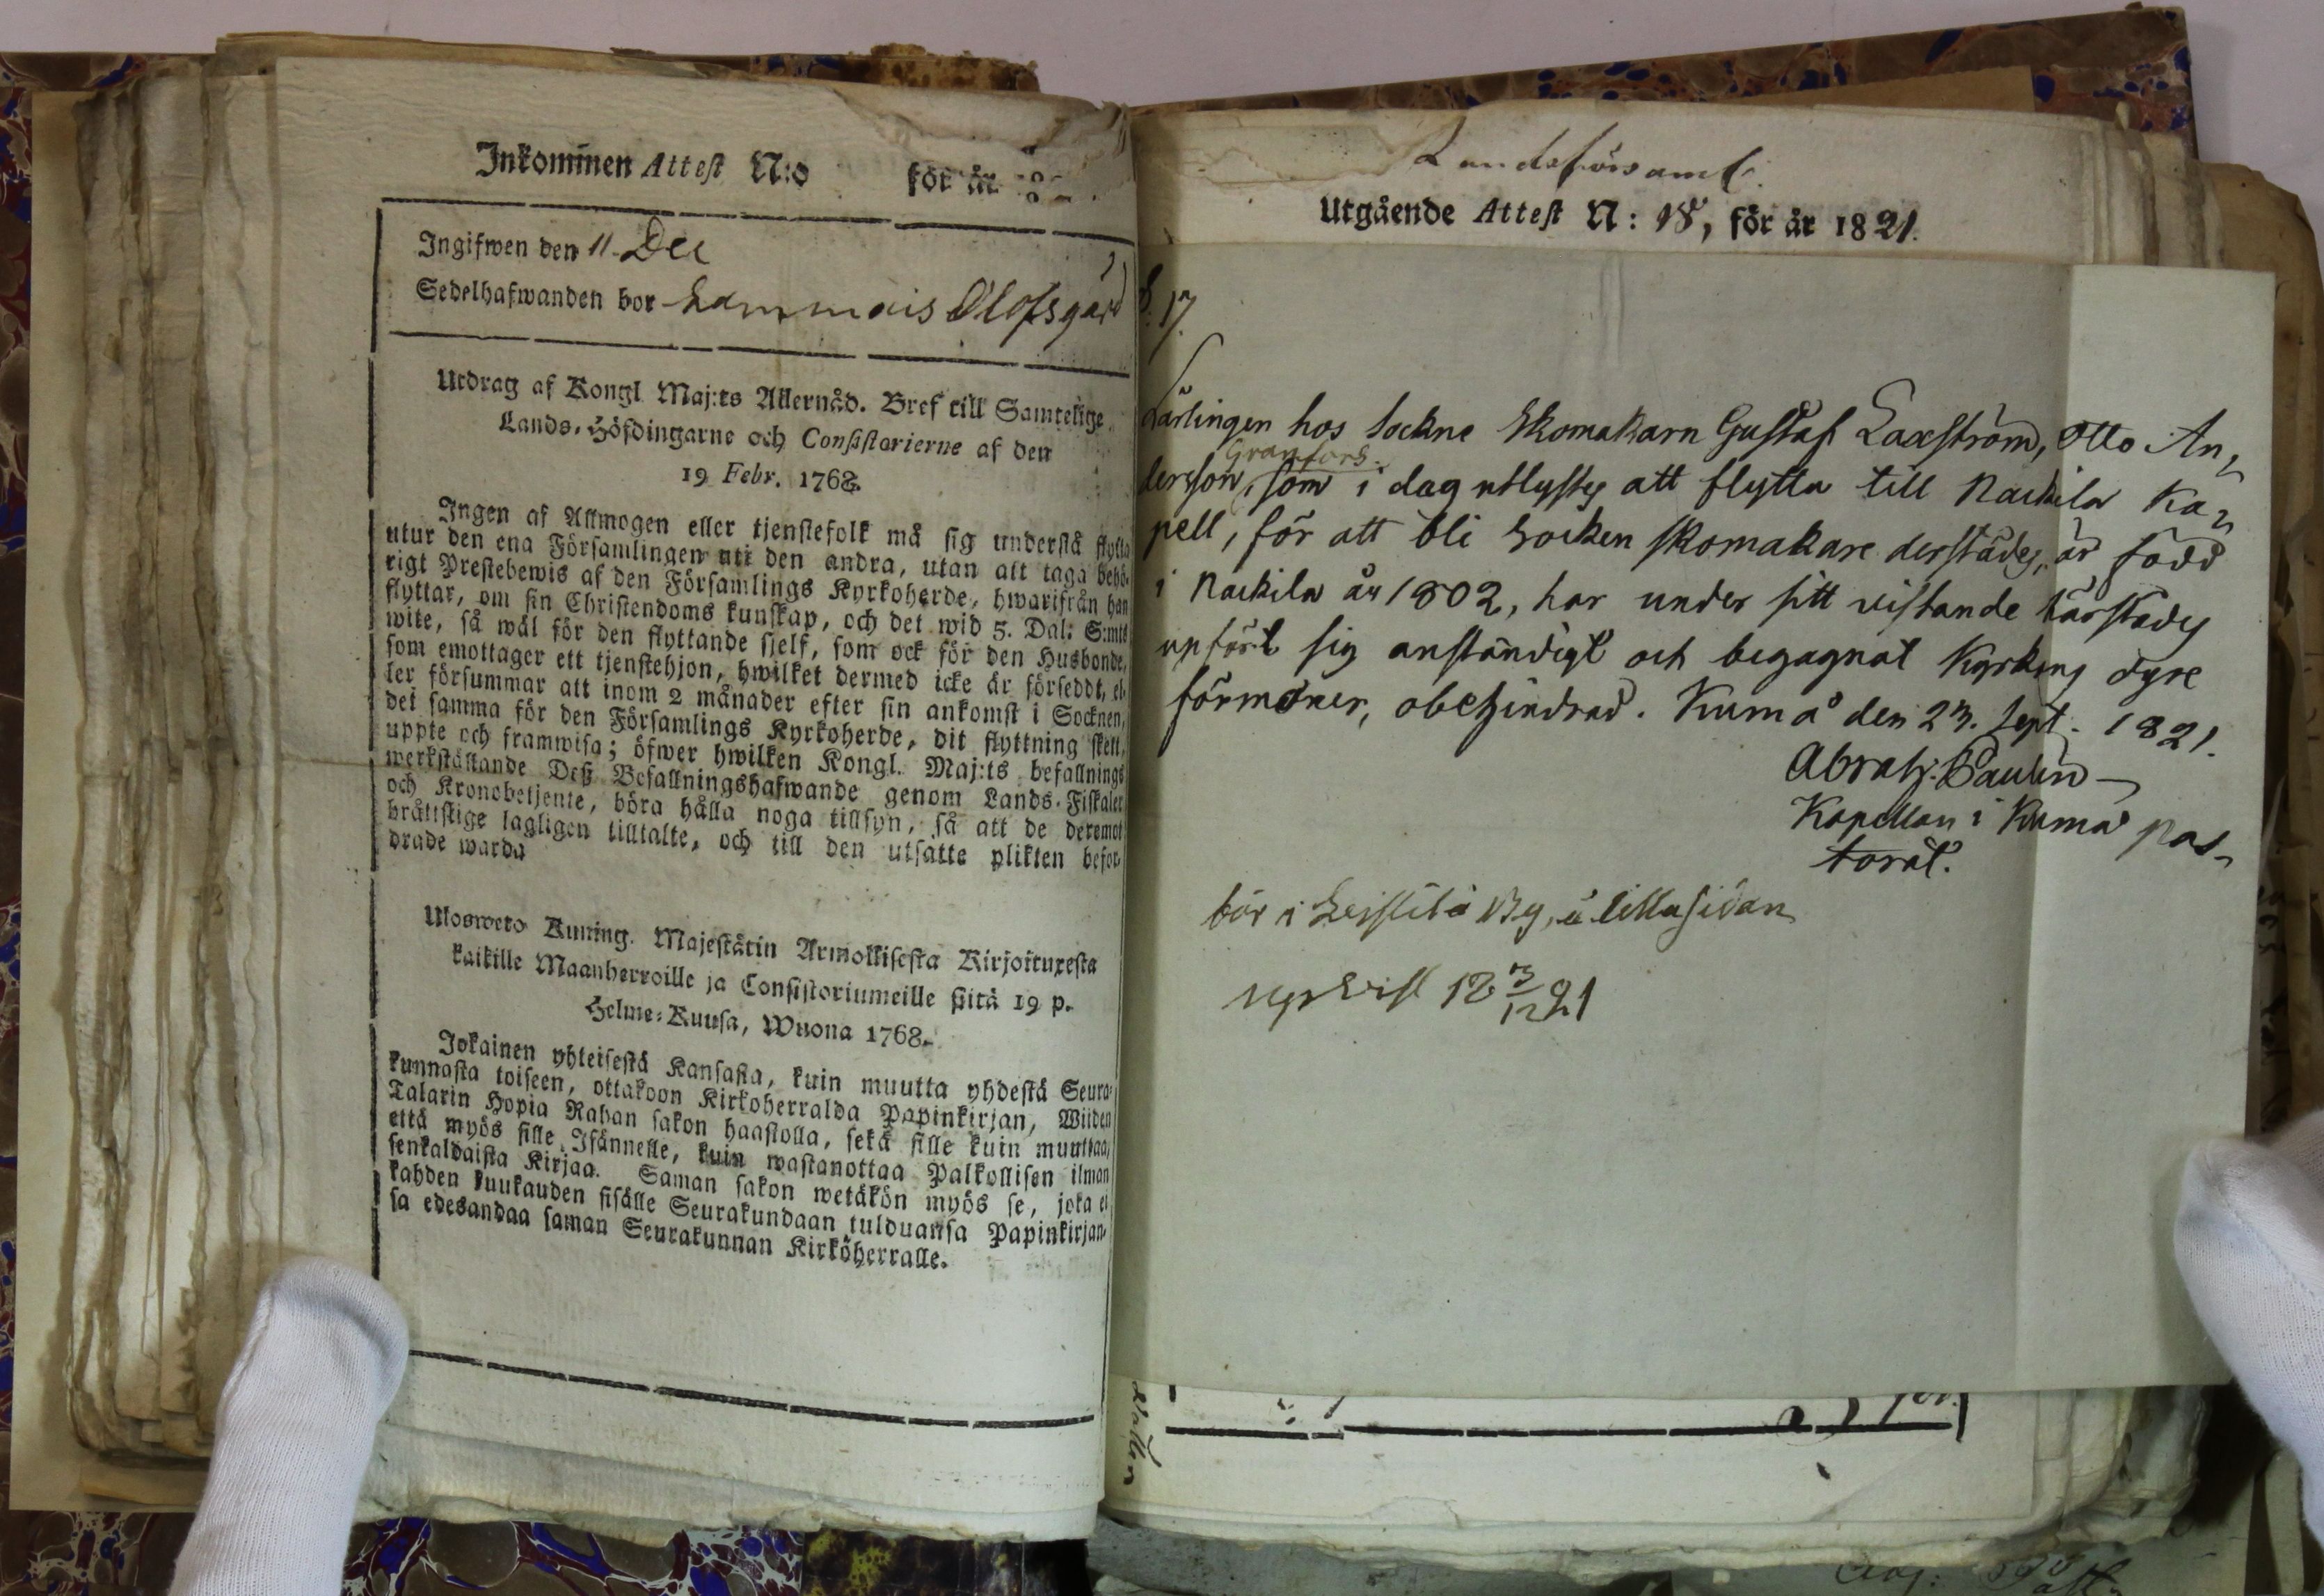 Inkommen Attest N:o för år 182
Ingifwen den 11 Dec
Sedelhafwanden bor Lammais Olofsgård
Utdrag af Kongl. Maj:ts Allernåd. Bref till Samtelige
Lands-Höfdingarne och Consistorierne af den
19 Febr. 1768.
Ingen af Allmogen eller tjenstefolk må sig understå flytta
utur den ena Församlingen uti den andra, utan att taga behö-
rigt Prestebewis af den Församlings Kyrkoherde, hwarifrån han
flyttar, om sin Christendoms kunskap, och det wid 5. Dal: S:mts
wite, så wäl för den flyttande sjelf, som ock för den Husbonde,
som emottager ett tjenstehjon, hwilket dermed icke är försedt, el-
ler försummar att inom 2 månader efter sin ankomst i Socknen,
det samma för den Församlings Kyrkoherde, dit flyttning skett,
uppte och framwisa; öfwer hwilken Kongl. Maj:ts befallnings
werkställande Deß Befallningshafwande genom Lands-Fiskaler
och Kronobetjente, böra hålla noga tillsyn, så att de deremot
bråttslige lagligen tilltalte, och till den utsatte plikten befor-
drade warda
Uloswero Kuning. Majestätin Armollisesta Kirjoituxesta
kaikille Maanherroille ja Consistoriumeille siitä 19 p.
Helme-Kuusa, Wuona 1768.
Jokainen yhteisestä Kansasta, kuin muutta yhdestä Seura-
kunnasta toiseen, ottakoon Kirkoherralda Papinkirjan, Wiiden
Talarin Hopia Rahan sakon haastolla, sekä sille kuin muuttaa,
että myös sille Isännelle, kuin wastanottaa Palkollisen ilman
senkaldaista Kirjaa. Saman sakon wetäkön myös se, joka ei
kahden kuukauden sisälle Seurakundaan tulduansa Papinkirjan-
sa edesandaa saman Seurakunnan Kirköherralle.
Landsförsaml.
Utgående Attest N: 18, för år 1821.
17.
Lärlingen hos Sockne Skomakarn Gustaf Laxström, Otto An-
Granfors
dersson, som i dag utlystes att flytta till Nackila Ka-
pell, för att bli Socken skomakare derstädes, är född
i Nackila år 1802, har under sitt vistande härstädes
upfört sig anständigt och begagnat Kyrkans dyre
förmåner, obehindrad. Kumå den 23. Sept. 1821.
Abrah. Paulin
Kapellan i Kumå pas-
torat.
bör i Leistilä By, å lillasidan
18 3/12 21